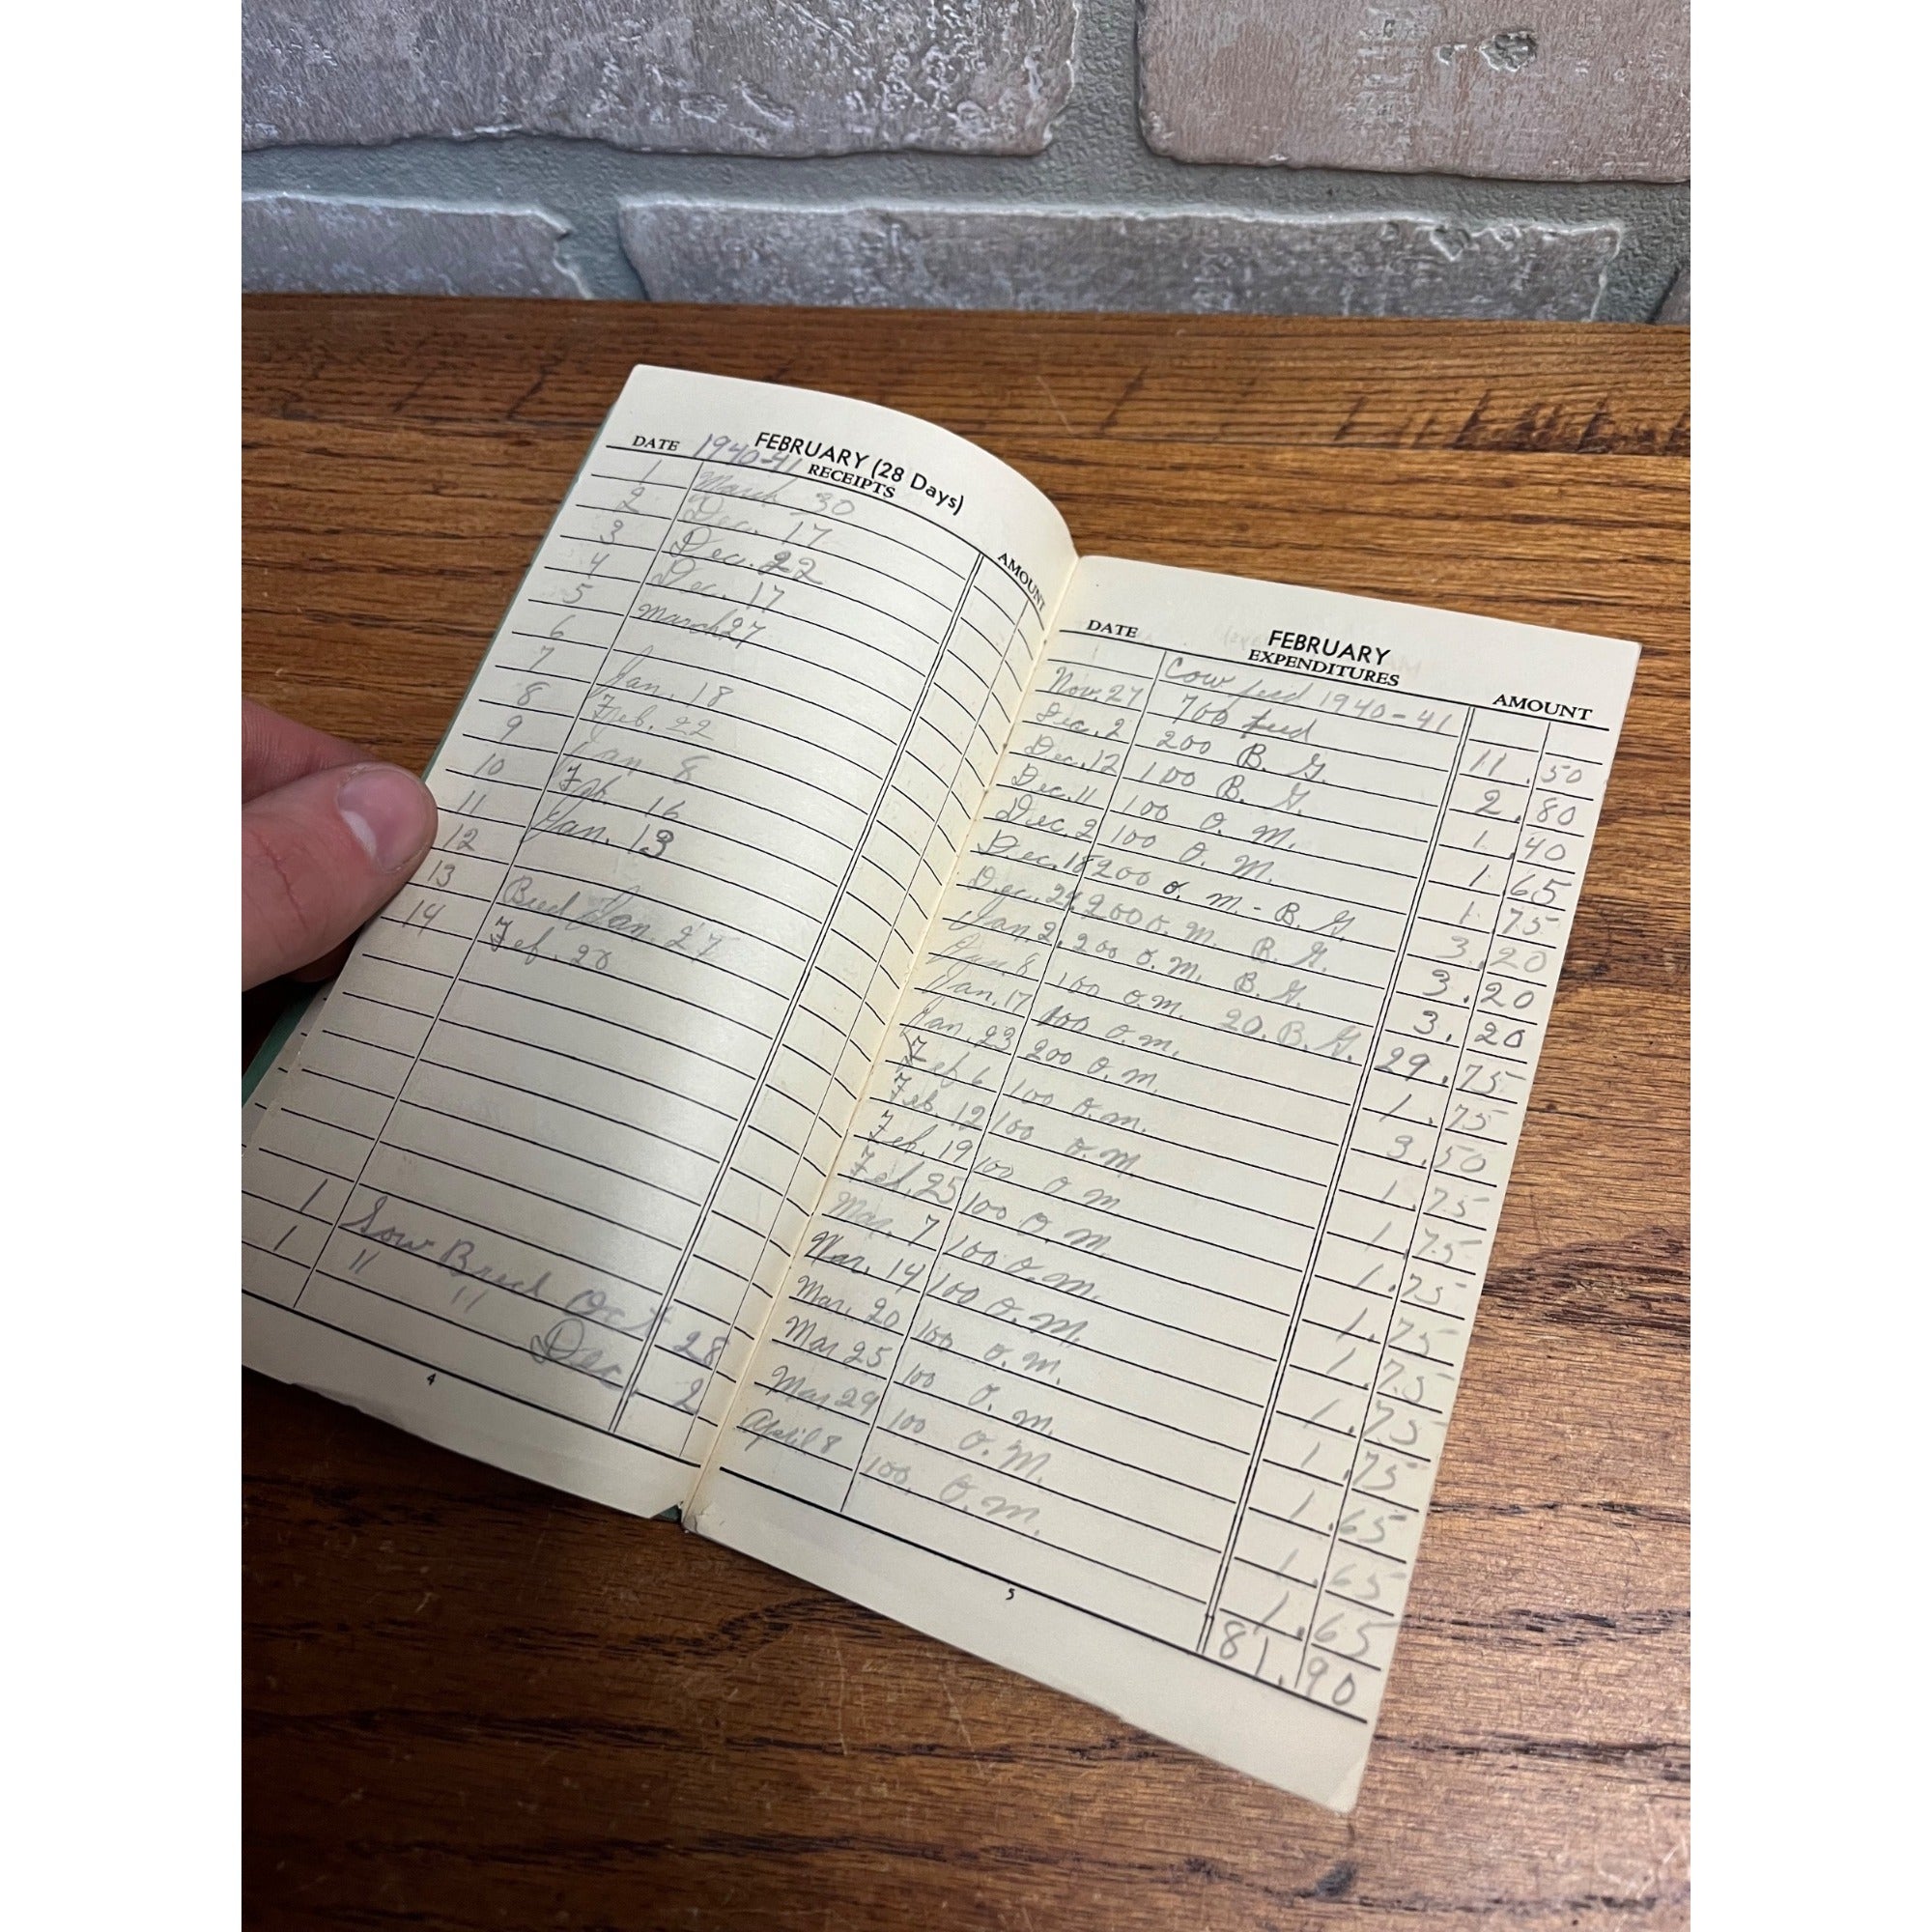 FEBRUARY (28 Days)
DATE 1940-41 RECEIPTS AMOUNT
1 March 30
2 Dec. 17
3 Dec. 22
4 Dec. 17
5 March 27
6
7 Jan. 18
8 Feb. 22
9 Jan 8
10 Feb. 16
11 Jan. 13
12
13 Bred Jan 27
14 Feb. 20
1 Sow Bred Oct 28
1 " " Dec. 2
4
FEBRUARY
DATE EXPENDITURES AMOUNT
Cow feed 1940-41
Nov. 27 700 feed 11.50
Dec. 2 200 B. G. 2.80
Dec. 12 100 B. G. 1.40
Dec. 11 100 O. M. 1.65
Dec. 2 100 O. M. 1.75
Dec. 18 200 O. M. - B. G. 3.20
Dec. 200 O. M. B. G. 3.20
Jan. 2, 200 O. M. B. G. 3.20
Jan. 8 100 O. M. 20. B. G. 29.75
Jan. 17 100 O. M. 1.75
Jan. 23 200 O. M. 3.50
Feb 6 100 O. M. 1.75
Feb. 12 100 O. M. 1.75
Feb. 19 100 O M 1.75
Feb. 25 100 O. M. 1.75
Mar. 7 100 O. M. 1.75
Mar. 14 100 O. M. 1.75
Mar. 20 100 O. M. 1.75
Mar 25 100 O. M. 1.65
Mar 29 100 O. M. 1.65
April 8 100 O. M. 1.65
81.90
5